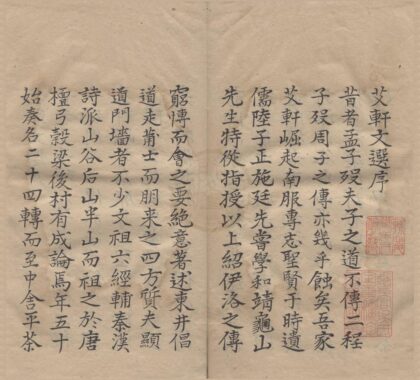 艾軒文選序
昔者孟子歿夫子之道不傳二程
子歿周子之傳亦幾乎蝕矣吾家
艾軒崛起南服專志聖賢于時遺
儒陸子正施廷先嘗學和靖龜山
先生特從指授以上紹伊洛之傳
窮愽而會之要絶意著述東井倡
道走莆士而朋来之四方質夫顯
道門墻者不少文祖六經輔秦漢
詩派山谷后山半山而祖之於唐
檀弓穀梁後村有成論焉年五十
始奏名二十四轉而至中舍平茶